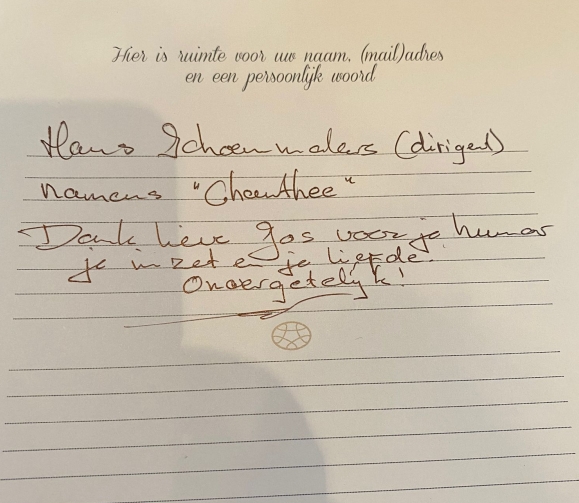 Hier is ruimte voor uw naam, (mail)adres
en een persoonlijk woord
Hans Schoenmakers (dirigent)
namens "Cheenthee"
Dank lieve Jos voor je humor
je inzet en je liefde.
Onvergetelijk!